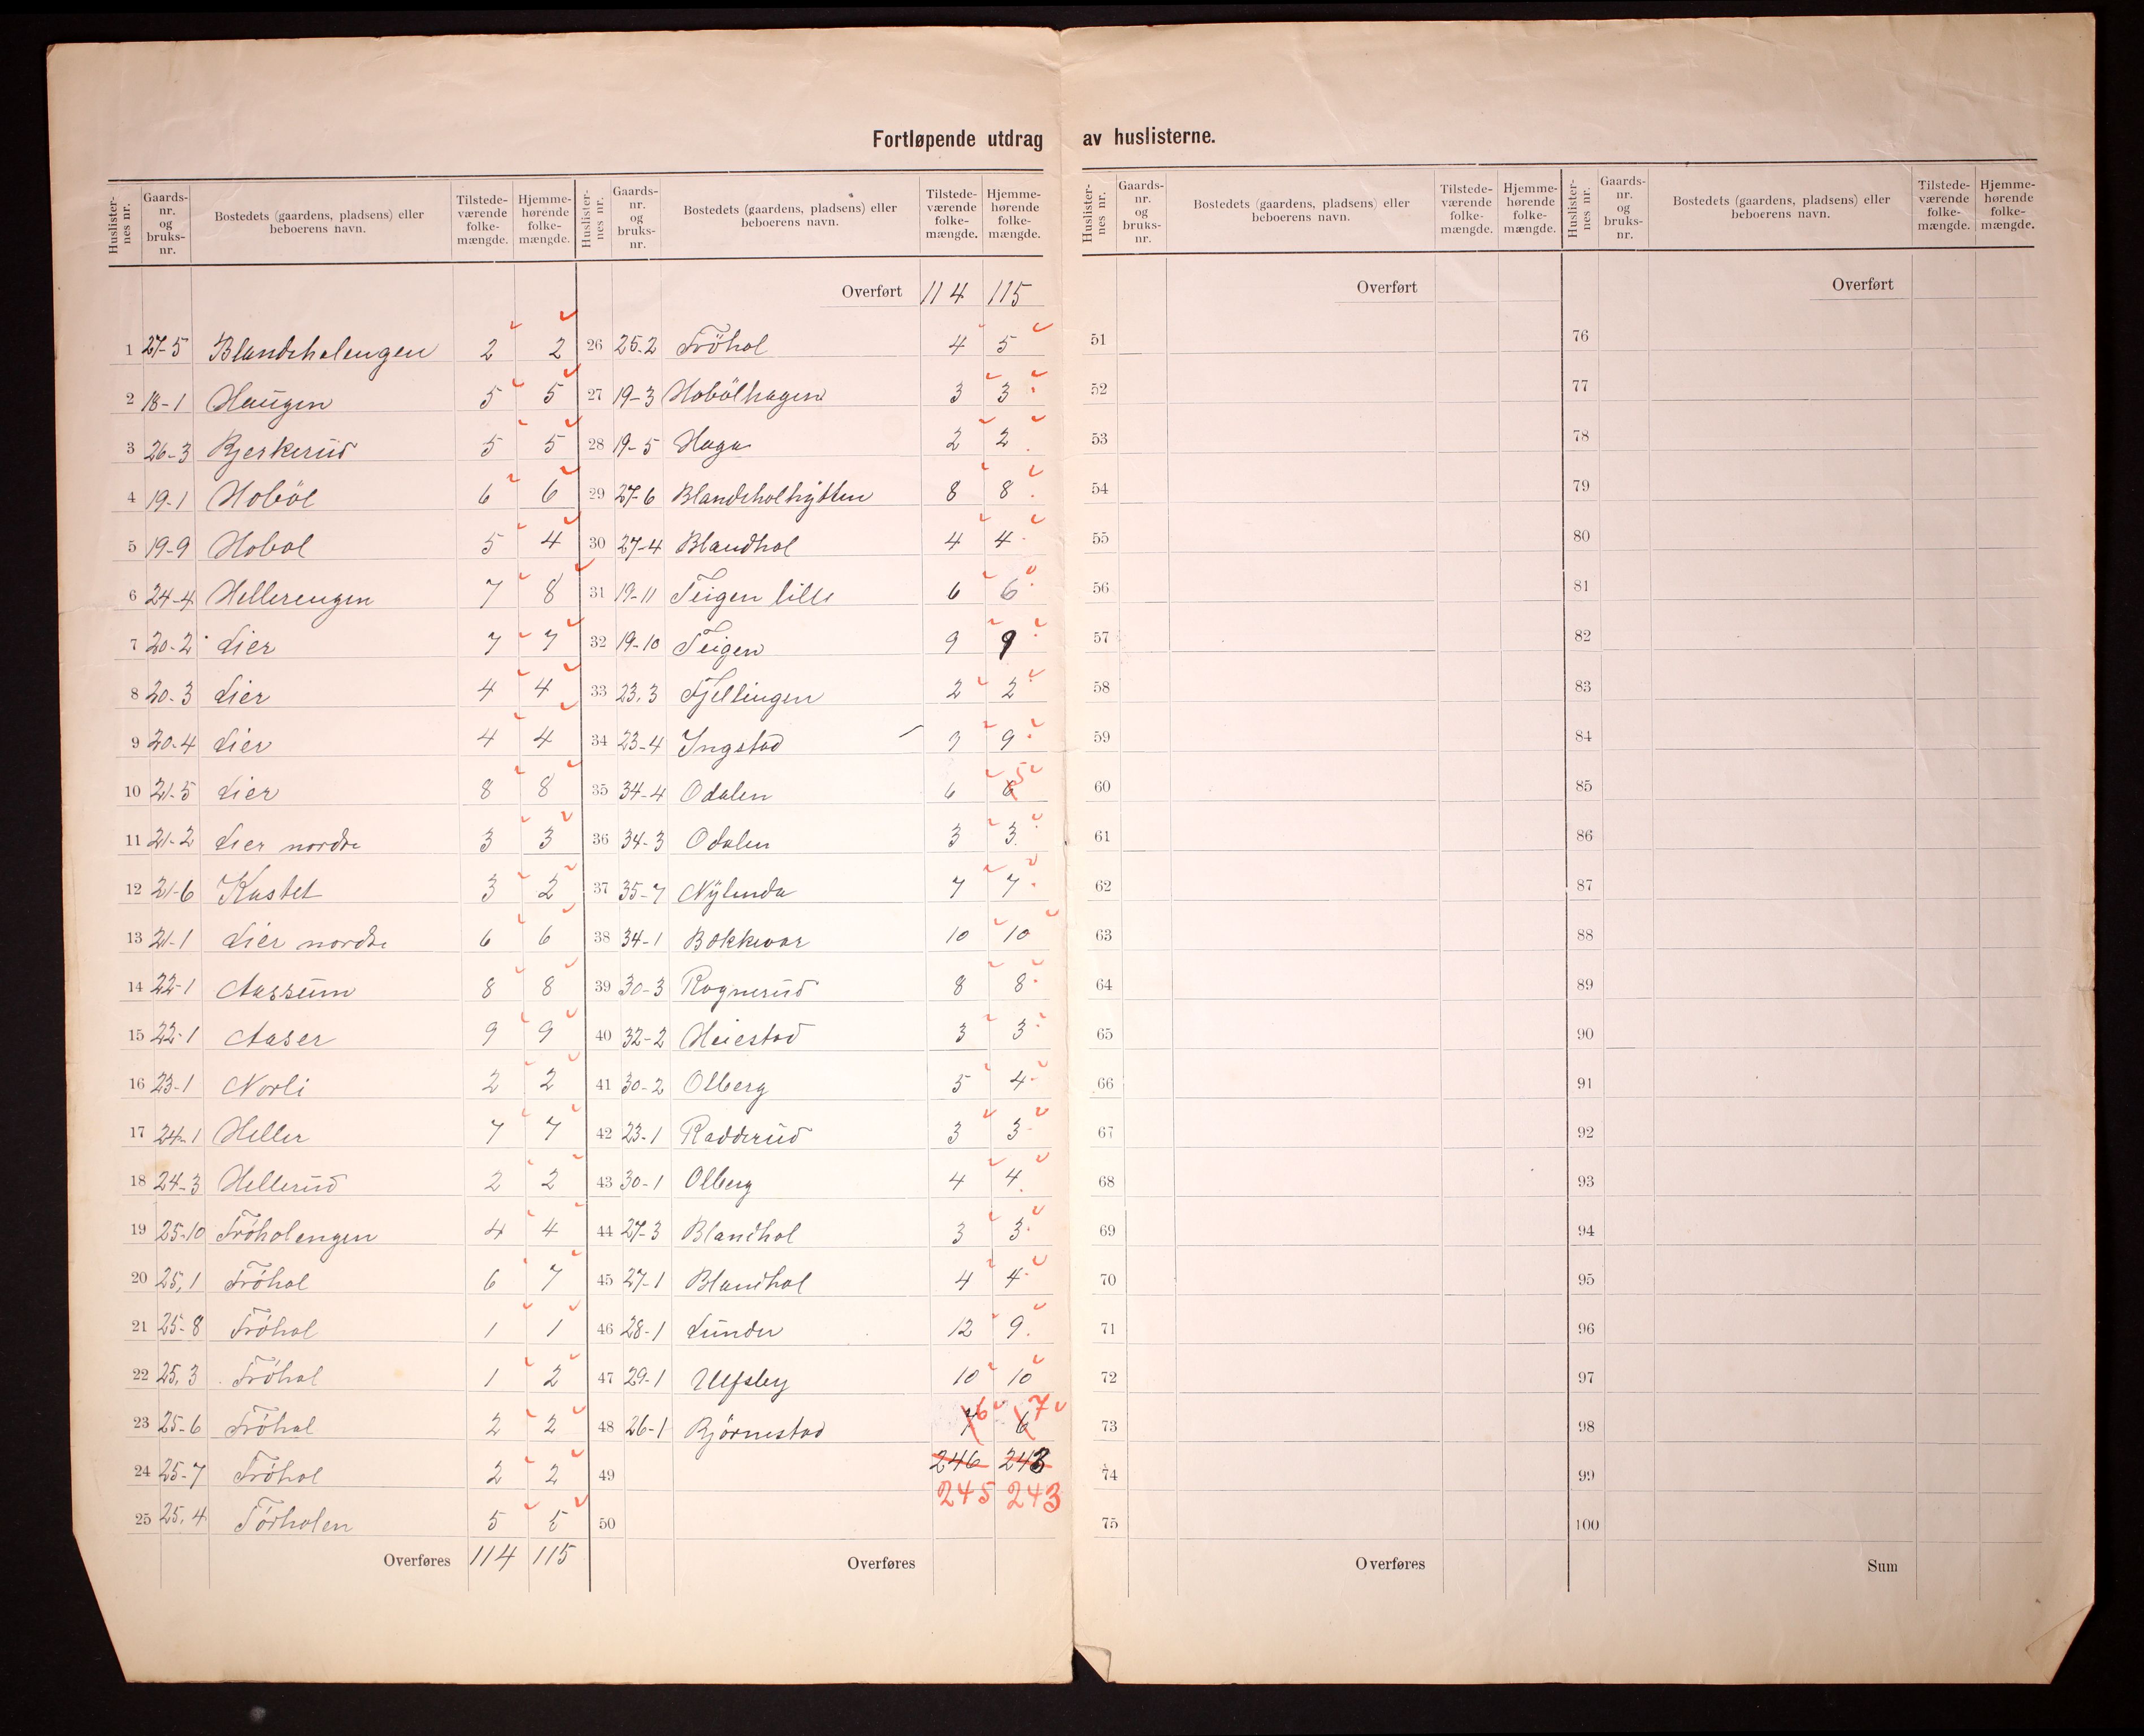 Fortløpende utdrag av huslisterne.
Huslister-nes nr. Gaards-nr. og bruks-nr. Bostedets (gaardens, pladsens) eller beboerens navn. Tilstede-værende folke-mængde. Hjemme-hørende folke-mængde.
1 27-5 Blandeholengen 2 2
2 18-1 Haugen 5 5
3 26-3 Bjerkerud 5 5
4 19-1 Hobøl 6 6
5 19-9 Hobøl 5 4
6 24-4 Hellerengen 7 8
7 20-2 Lier 7 7
8 20-3 Lier 4 4
9 20-4 Lier 4 4
10 21-5 Lier 8 8
11 21-2 Lier nordre 3 3
12 21-6 Kastet 3 2
13 21-1 Lier nordre 6 6
14 22-1 Aassum 8 8
15 22-1 Aaser 9 9
16 23-1 Norli 2 2
17 24-1 Heller 7 7
18 24-3 Hellerud 2 2
19 25-10 Fröholengen 4 4
20 25,1 Fröhol 6 7
21 25-8 Fröhol 1 1
22 25,3 Fröhol 1 2
23 25-6 Fröhol 2 2
24 25-7 Fröhol 2 2
25 25,4 Förholen 5 5
Overføres 114 115
Huslister-nes nr. Gaards-nr. og bruks-nr. Bostedets (gaardens, pladsens) eller beboerens navn. Tilstede-værende folke-mængde. Hjemme-hørende folke-mængde.
Overført 114 115
26 25-2 Fröhol 4 5
27 19-3 Hobölhagen 3 3
28 19-5 Haga 2 2
29 27-6 Blandeholhytten 8 8
30 27-4 Blandhol 4 4
31 19-11 Teigen lille 6 6
32 19-10 Teigen 9 9
33 23,3 Fjellingen 2 2
34 23-4 Ingstad 9 9
35 34-4 Odalen 6 6 5
36 34-3 Odalen 3 3
37 35-7 Nylenda 7 7
38 34-1 Bakkevar 10 10
39 30-3 Rognerud 8 8
40 32-2 Heiestad 3 3
41 30-2 Olberg 5 4
42 23-1 Radderud 3 3
43 30-1 Olberg 4 4
44 27-3 Blandhol 3 3
45 27-1 Blandhol 4 4
46 28-1 Lunder 12 9
47 29-1 Ulfsby 10 10
48 26-1 Björnestad 7 6 6 7
49 246 243
245 243
50
Overføres
Huslister-nes nr. Gaards-nr. og bruks-nr. Bostedets (gaardens, pladsens) eller beboerens navn. Tilstede-værende folke-mængde. Hjemme-hørende folke-mængde.
Overført
51
52
53
54
55
56
57
58
59
60
61
62
63
64
65
66
67
68
69
70
71
72
73
74
75
Overføres
Huslister-nes nr. Gaards-nr. og bruks-nr. Bostedets (gaardens, pladsens) eller beboerens navn. Tilstede-værende folke-mængde. Hjemme-hørende folke-mængde.
Overført
76
77
78
79
80
81
82
83
84
85
86
87
88
89
90
91
92
93
94
95
96
97
98
99
100
Sum